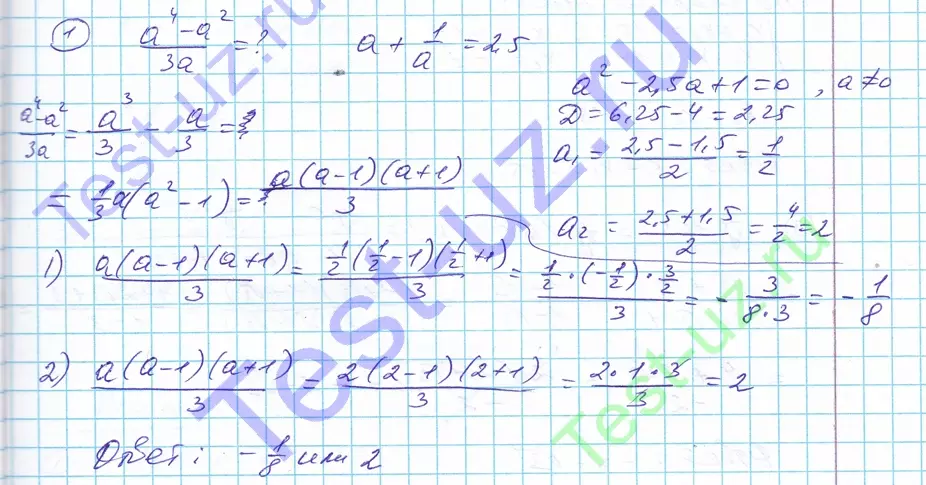 1 (a⁴ - a²)/3a = ? a + 1/a = 2,5
a² - 2,5a + 1 = 0 , a ≠ 0
D = 6,25 - 4 = 2,25
(a⁴ - a²)/3a = a³/3 - a/3 =
a₁ = (2,5 - 1,5)/2 = 1/2
= 1/3 a(a² - 1) = a(a-1)(a+1)/3
a₂ = (2,5 + 1,5)/2 = 4/2 = 2
1) a(a-1)(a+1)/3 = 1/2(1/2 - 1)(1/2 + 1)/3 = 1/2 · (-1/2) · 3/2 /3 = - 3/(8·3) = - 1/8
2) a(a-1)(a+1)/3 = 2(2-1)(2+1)/3 = 2·1·3/3 = 2
Ответ: - 1/8 или 2
Test-uz.ru
Test-uz.ru
Test-uz.ru